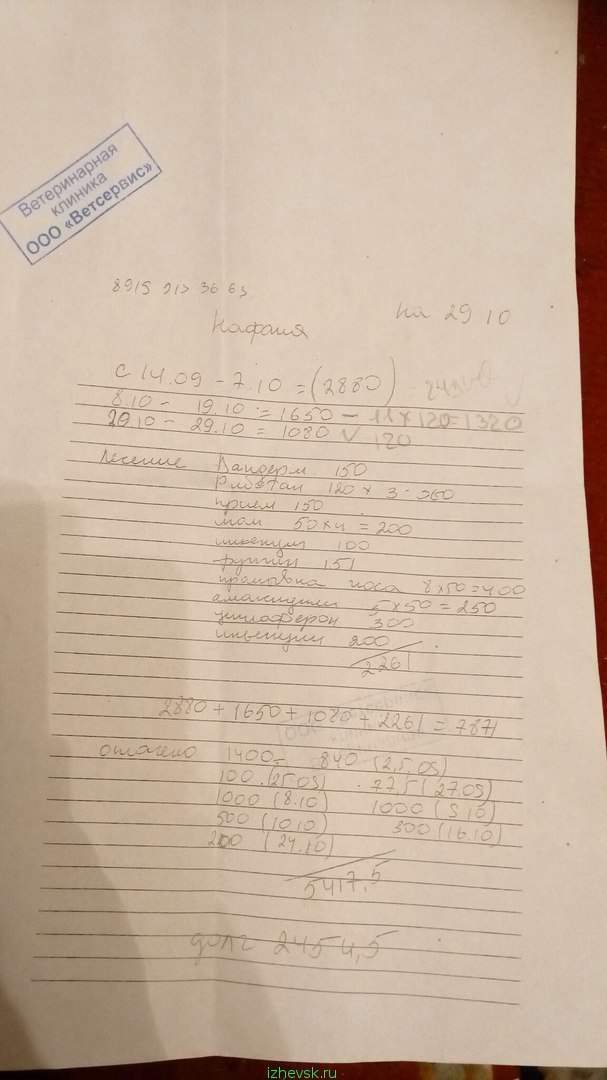 Ветеринарная
клиника
ООО «Ветсервис»
на 29 10
Кафаня
с 14.09 - 7.10 = (2880)
8.10 - 19.10 = 1650 - 11 x 120 = 1320
20.10 - 29.10 = 1080 V 120
Лечение Вандерм 150
120 x 3 = 360
прием 150
50 x 4 = 200
инъекции 100
151
промывка носа 8 x 50 = 400
5 x 50 = 250
циклоферон 300
инъекции 200
2261
2880 + 1650 + 1080 + 2261 = 7871
оплачено 1400 840 (25.09)
100 (25.09) 77,5 (27.09)
1000 (8.10) 1000 (5.10)
500 (10.10) 300 (16.10)
200 (24.10)
5417,5
долг 2454,5
izhevsk.ru